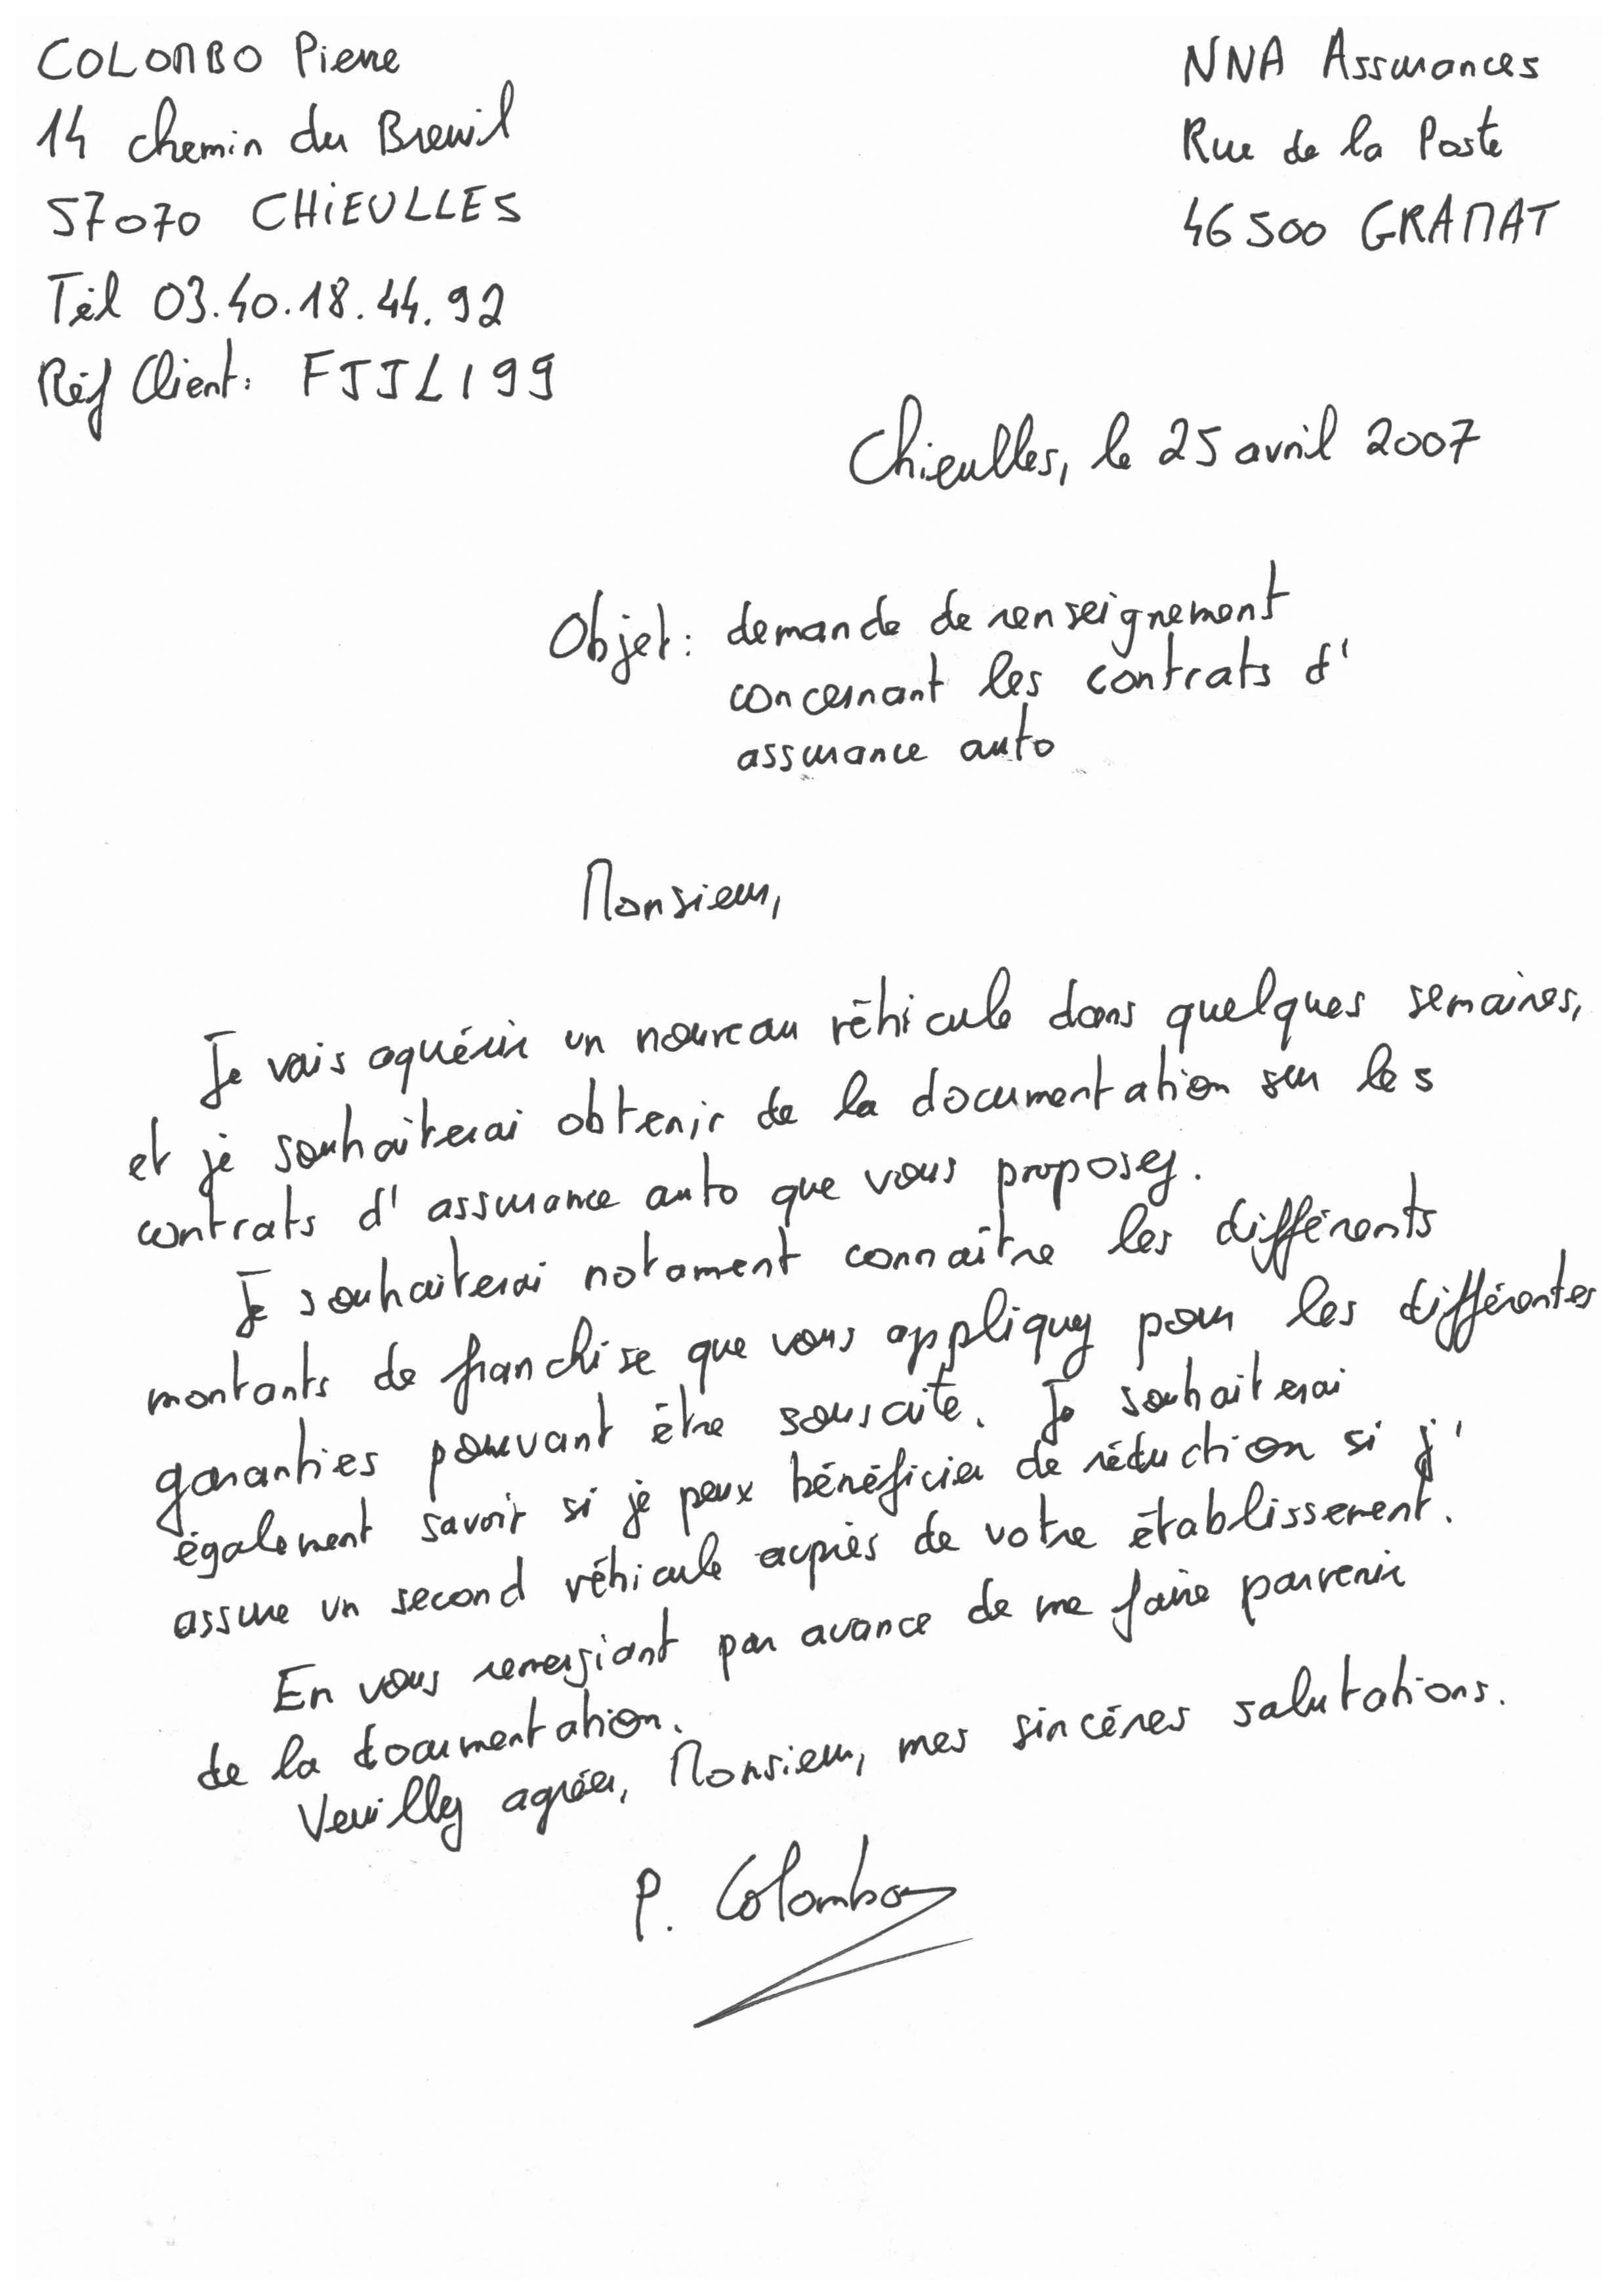 COLOMBO Pierre
14 chemin du Breuil
57070 CHIEULLES
Tél 03.40.18.44.92
Réf Client: FJJL199
NNA Assurances
Rue de la Poste
46500 GRAMAT
Chieulles, le 25 avril 2007
Objet: demande de renseignement
concernant les contrats d'
assurance auto
Monsieur,
Je vais aquérir un nouveau véhicule dans quelques semaines,
et je souhaiterai obtenir de la documentation sur les
contrats d'assurance auto que vous proposez.
Je souhaiterai notament connaître les différents
montants de franchise que vous appliquez pour les différentes
garanties pouvant être souscite. Je souhaiterai
également savoir si je peux bénéficier de réduction si j'
assure un second véhicule auprès de votre établissement.
En vous remerçiant par avance de me faire parvenir
de la documentation.
Veuillez agréer, Monsieur, mes sincéres salutations.
P. Colombo